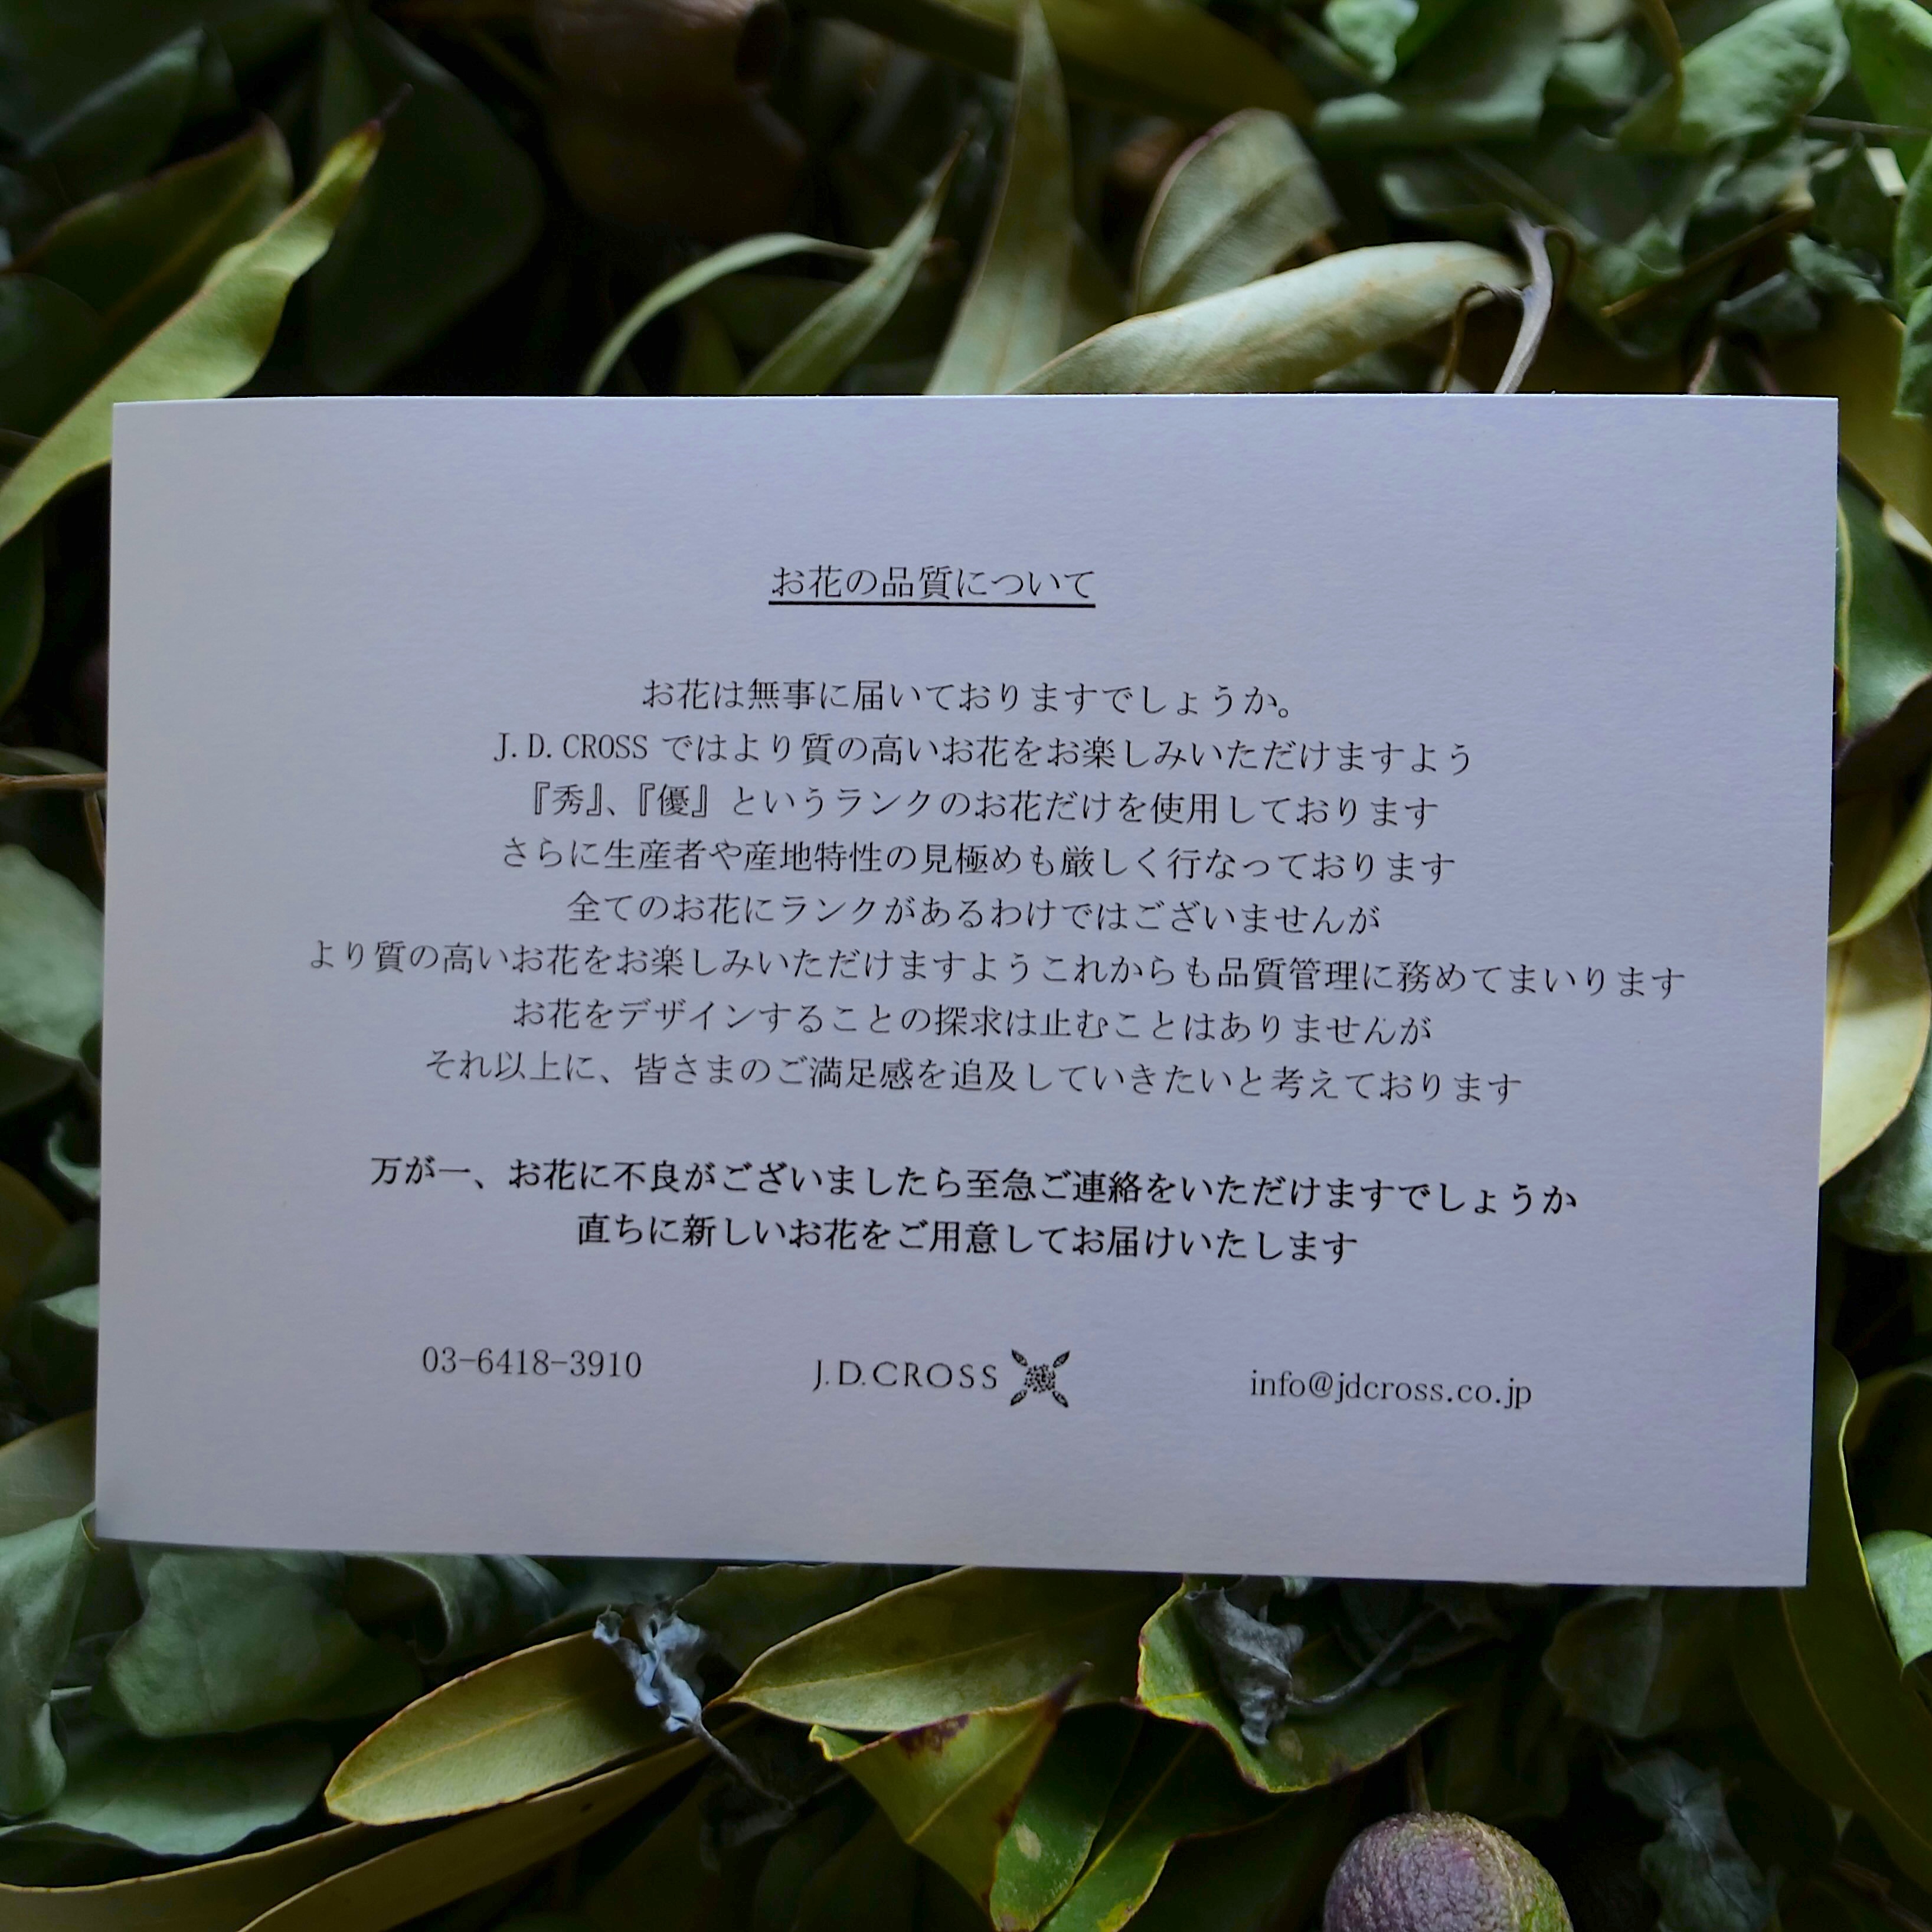 お花の品質について
お花は無事に届いておりますでしょうか。
J.D.CROSS ではより質の高いお花をお楽しみいただけますよう
『秀』、『優』というランクのお花だけを使用しております
さらに生産者や産地特性の見極めも厳しく行なっております
全てのお花にランクがあるわけではございませんが
より質の高いお花をお楽しみいただけますようこれからも品質管理に務めてまいります
お花をデザインすることの探求は止むことはありませんが
それ以上に、皆さまのご満足感を追及していきたいと考えております
万が一、お花に不良がございましたら至急ご連絡をいただけますでしょうか
直ちに新しいお花をご用意してお届けいたします
03-6418-3910 J.D.CROSS info@jdcross.co.jp